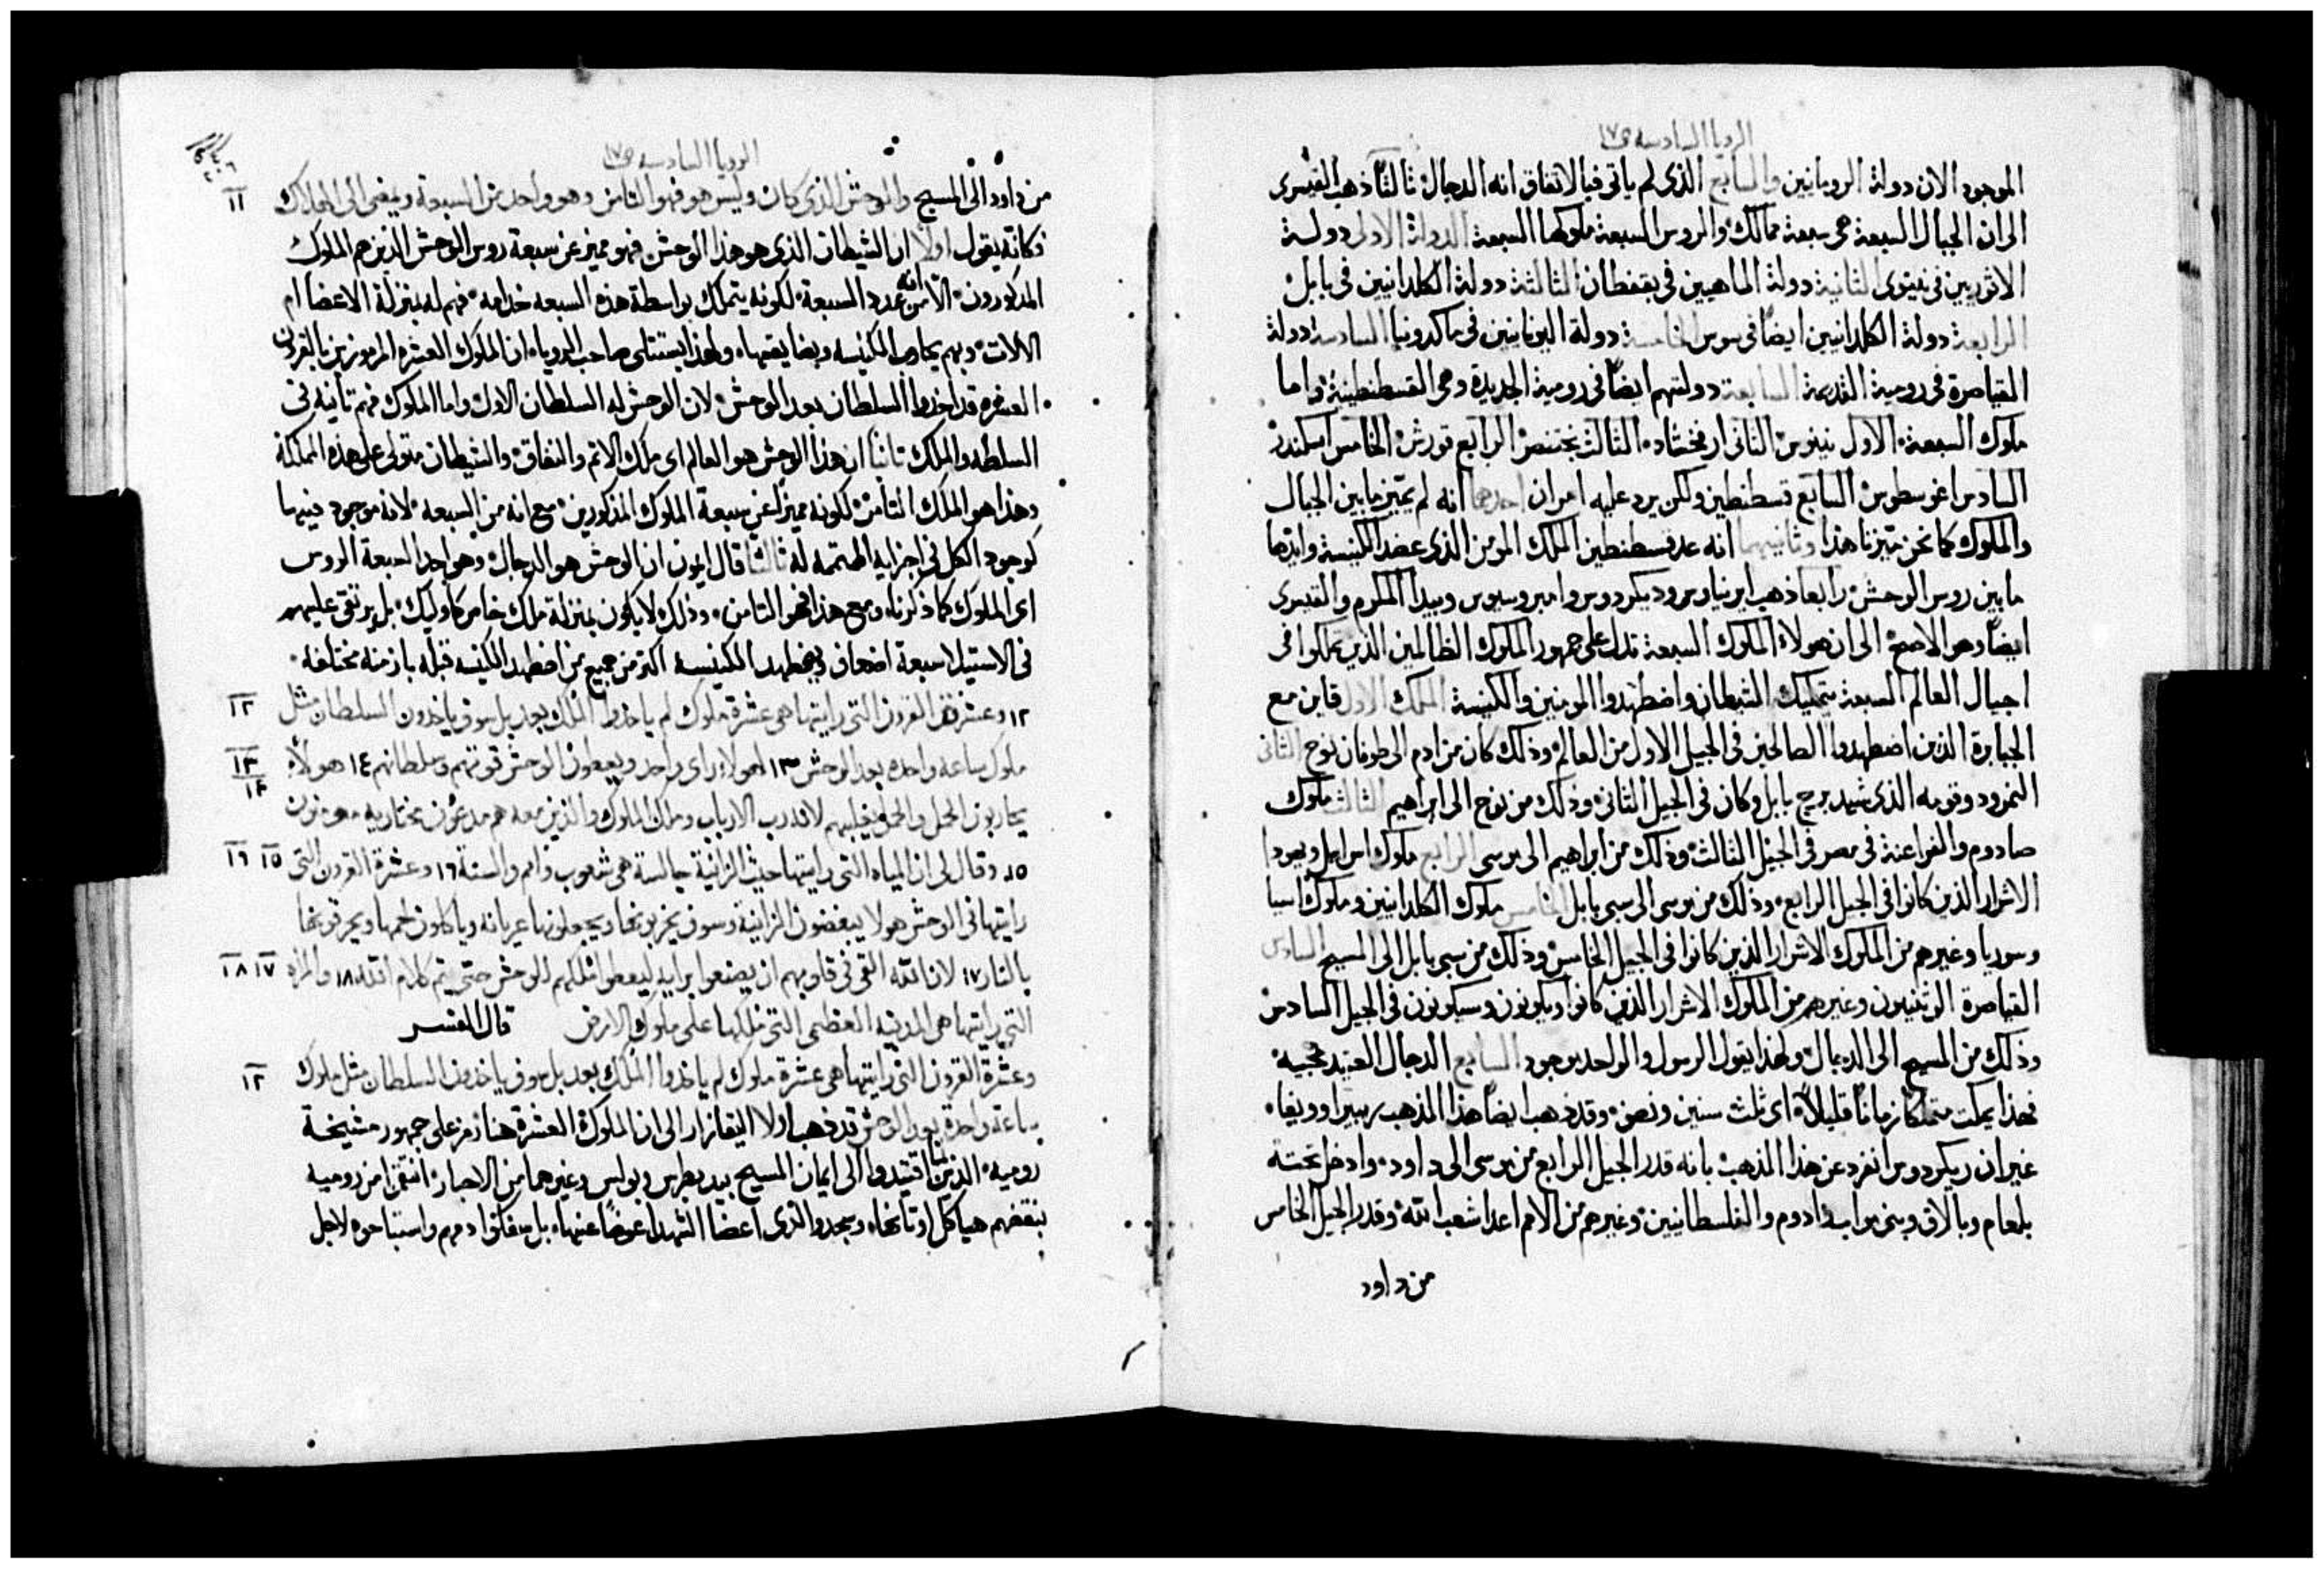 الرويا السادسه ص١٧
الموجود الان دولة الرومانيين والسابع الذى لم ياتى فبالاتفاق انه الدجال ثالثًا ذهب القيسرى
الى ان الجبال السبعة هى سبعة ممالك والروس السبعة ملوكها السبعة الدولة الاولى دولة
الاثوريين فى نينوى الثانية دولة الماهيين فى بقفطان الثالثة دولة الكلدانيين فى بابل
الرابعة دولة الكلدانيين ايضًا فى سوس الخامسة دولة اليونانيين فى ماكدونيا السادسة دولة
القياصرة فى رومية القديمة السابعة دولتهم ايضًا فى رومية الجديدة وهى القسطنطينية واما
ملوك السبعة الاول نينوس الثانى ارفخشاد الثالث بختنصر الرابع قورش الخامس اسكندر
السادس اغوسطوس السابع قسطنطين ولكن يرد عليه امران احدهما انه لم يميز ما بين الجبال
والملوك كما نحن ميزنا هذا وثانيهما انه عد قسطنطين الملك المومن الذى عضد الكنيسة وايدها
ما بين روس الوحش رابعا ذهب ايريناوس وديكردوس وامبروسيوس وبيدا المكرم والقيسرى
ايضًا وهو الاصح الى ان هولاء الملوك السبعة تدل على جمهور الملوك الظالمين الذين تملكوا فى
اجيال العالم السبعة بتمليك الشيطان واضطهدوا المومنين والكنيسة الملك الاول قاين مع
الجبابرة الذين اضطهدوا الصالحين فى الجيل الاول من العالم وذلك كان من ادم الى طوفان نوح الثانى
النمرود وقومه الذى شيد برج بابل وكان فى الجيل الثانى وذلك من نوح الى ابراهيم الثالث ملوك
صادوم والفراعنة فى مصر فى الجيل الثالث وذلك من ابراهيم الى موسى الرابع ملوك اسراييل ويهودا
الاشرار الذين كانوا فى الجيل الرابع وذلك من موسى الى سبى بابل الخامس ملوك الكلدانيين وملوك اسيا
وسوريا وغيرهم من الملوك الاشرار الذين كانوا فى الجيل الخامس وذلك من سبى بابل الى المسيح السادس
القياصرة الوثنيون وغيرهم من الملوك الاشرار الذين كانوا ويكونون وسيكونون فى الجيل السادس
وذلك من المسيح الى الدجال ولهذا يقول الرسول والواحد موجود السابع الدجال العتيد مجيه
فهذا يمكث متملكا زمانًا قليلاً اى ثلث سنين ونصف وقد ذهب ايضًا هذا المذهب ريبيرا وويغاه
غير ان ريكردوس انفرد عن هذا المذهب بانه قدر الجيل الرابع من موسى الى داود وادخل تحته
بلعام وبالاق وبنى مواب وادوم والفلسطانيين وغيرهم من الامم اعدا شعب الله وقدر الجيل الخامس
من داود
الرويا السادسه ص١٧
من داود الى المسيح والوحش الذى كان وليس هو فهو الثامن وهو واحد من السبعة ويمضى الى الهلاك ١١
وكانه يقول اولاً ان الشيطان الذى هو هذا الوحش فهو مميز عن سبعة روس الوحش الذين هم الملوك
المذكورون الا انه من عدد السبعة لكونه يتملك بواسطة هذه السبعه خدامه فهم له بمنزلة الاعضا ام
الالات وبهم يحارب الكنيسه ويضايقها ولهذا يستتلى صاحب الرويا ان الملوك العشره المرموزين بالقرون
العشره قد اخذوا السلطان بعد الوحش لان الوحش له السلطان الاول واما الملوك فهم ثانيه فى
السلطه والملك ثانيا ان هذا الوحش هو العالم اى ملك الاثم والنفاق والشيطان متولى على هذه المملكة
وهذا هو الملك الثامن لكونه مميزًا عن سبعة الملوك المذكورين مع انه من السبعه لانه موجود فيها
كوجود الكل فى اجزايه المتممه له ثالثا قال اخرون ان الوحش هو الدجال وهو احد السبعة الروس
اى الملوك كما ذكرنا ومع هذا فهو الثامن وذلك لا يكون بمنزلة ملك خاص كاوليك بل يرتقى عليهم
فى الاستيلا سبعة اضعاف ويضطهد الكنيسه اكثر من جميع من اضطهد الكنيسه قبله بازمنه مختلفه
١٢ وعشرة القرون التى رايتها هى عشرة ملوك لم ياخذوا الملك بعد بل سوف ياخذون السلطان مثل ١٢
ملوك ساعه واحده بعد الوحش ١٣ لهولاء راى واحد ويعطون الوحش قوتهم وسلطانهم ١٤ هولاء ١٣ ١٤
يحاربون الحمل والحمل يغلبهم لانه رب الارباب وملك الملوك والذين معه هم مدعوون مختارين مومنون
١٥ وقال لى ان المياه التى رايتها حيث الزانية جالسة هى شعوب وامم والسنة ١٦ وعشرة القرون التى ١٥ ١٦
رايتها فى الوحش هولا يبغضون الزانية وسوف يخربونها ويجعلونها عريانه وياكلون لحمها ويحرقونها
بالنار ١٧ لان الله القى فى قلوبهم ان يصنعوا برايه ليعطوا ملكهم للوحش حتى يتم كلام الله ١٨ والمراه ١٧ ١٨
التى رايتها هى المدينه العظمى التى ملكها على ملوك الارض قال المفسر
وعشرة القرون التى رايتها هى عشرة ملوك لم ياخذوا الملك بعد بل سوف ياخذون السلطان مثل ملوك ١٢
ساعة واحدة بعد الوحش قد ذهب اولا اليقازار الى ان الملوك العشرة هنا رمز على جمهور مشيخة
رومية الذين لما اقتيدوا الى ايمان المسيح بيد بطرس وبولس وغيرهما من الاحبار انتقموا من رومية
بنقضهم هياكل اوثانها وسجدوا لذى اعضا الشهدا عوضًا عنها بل سفكوا دمهم واستباحوه لاجل